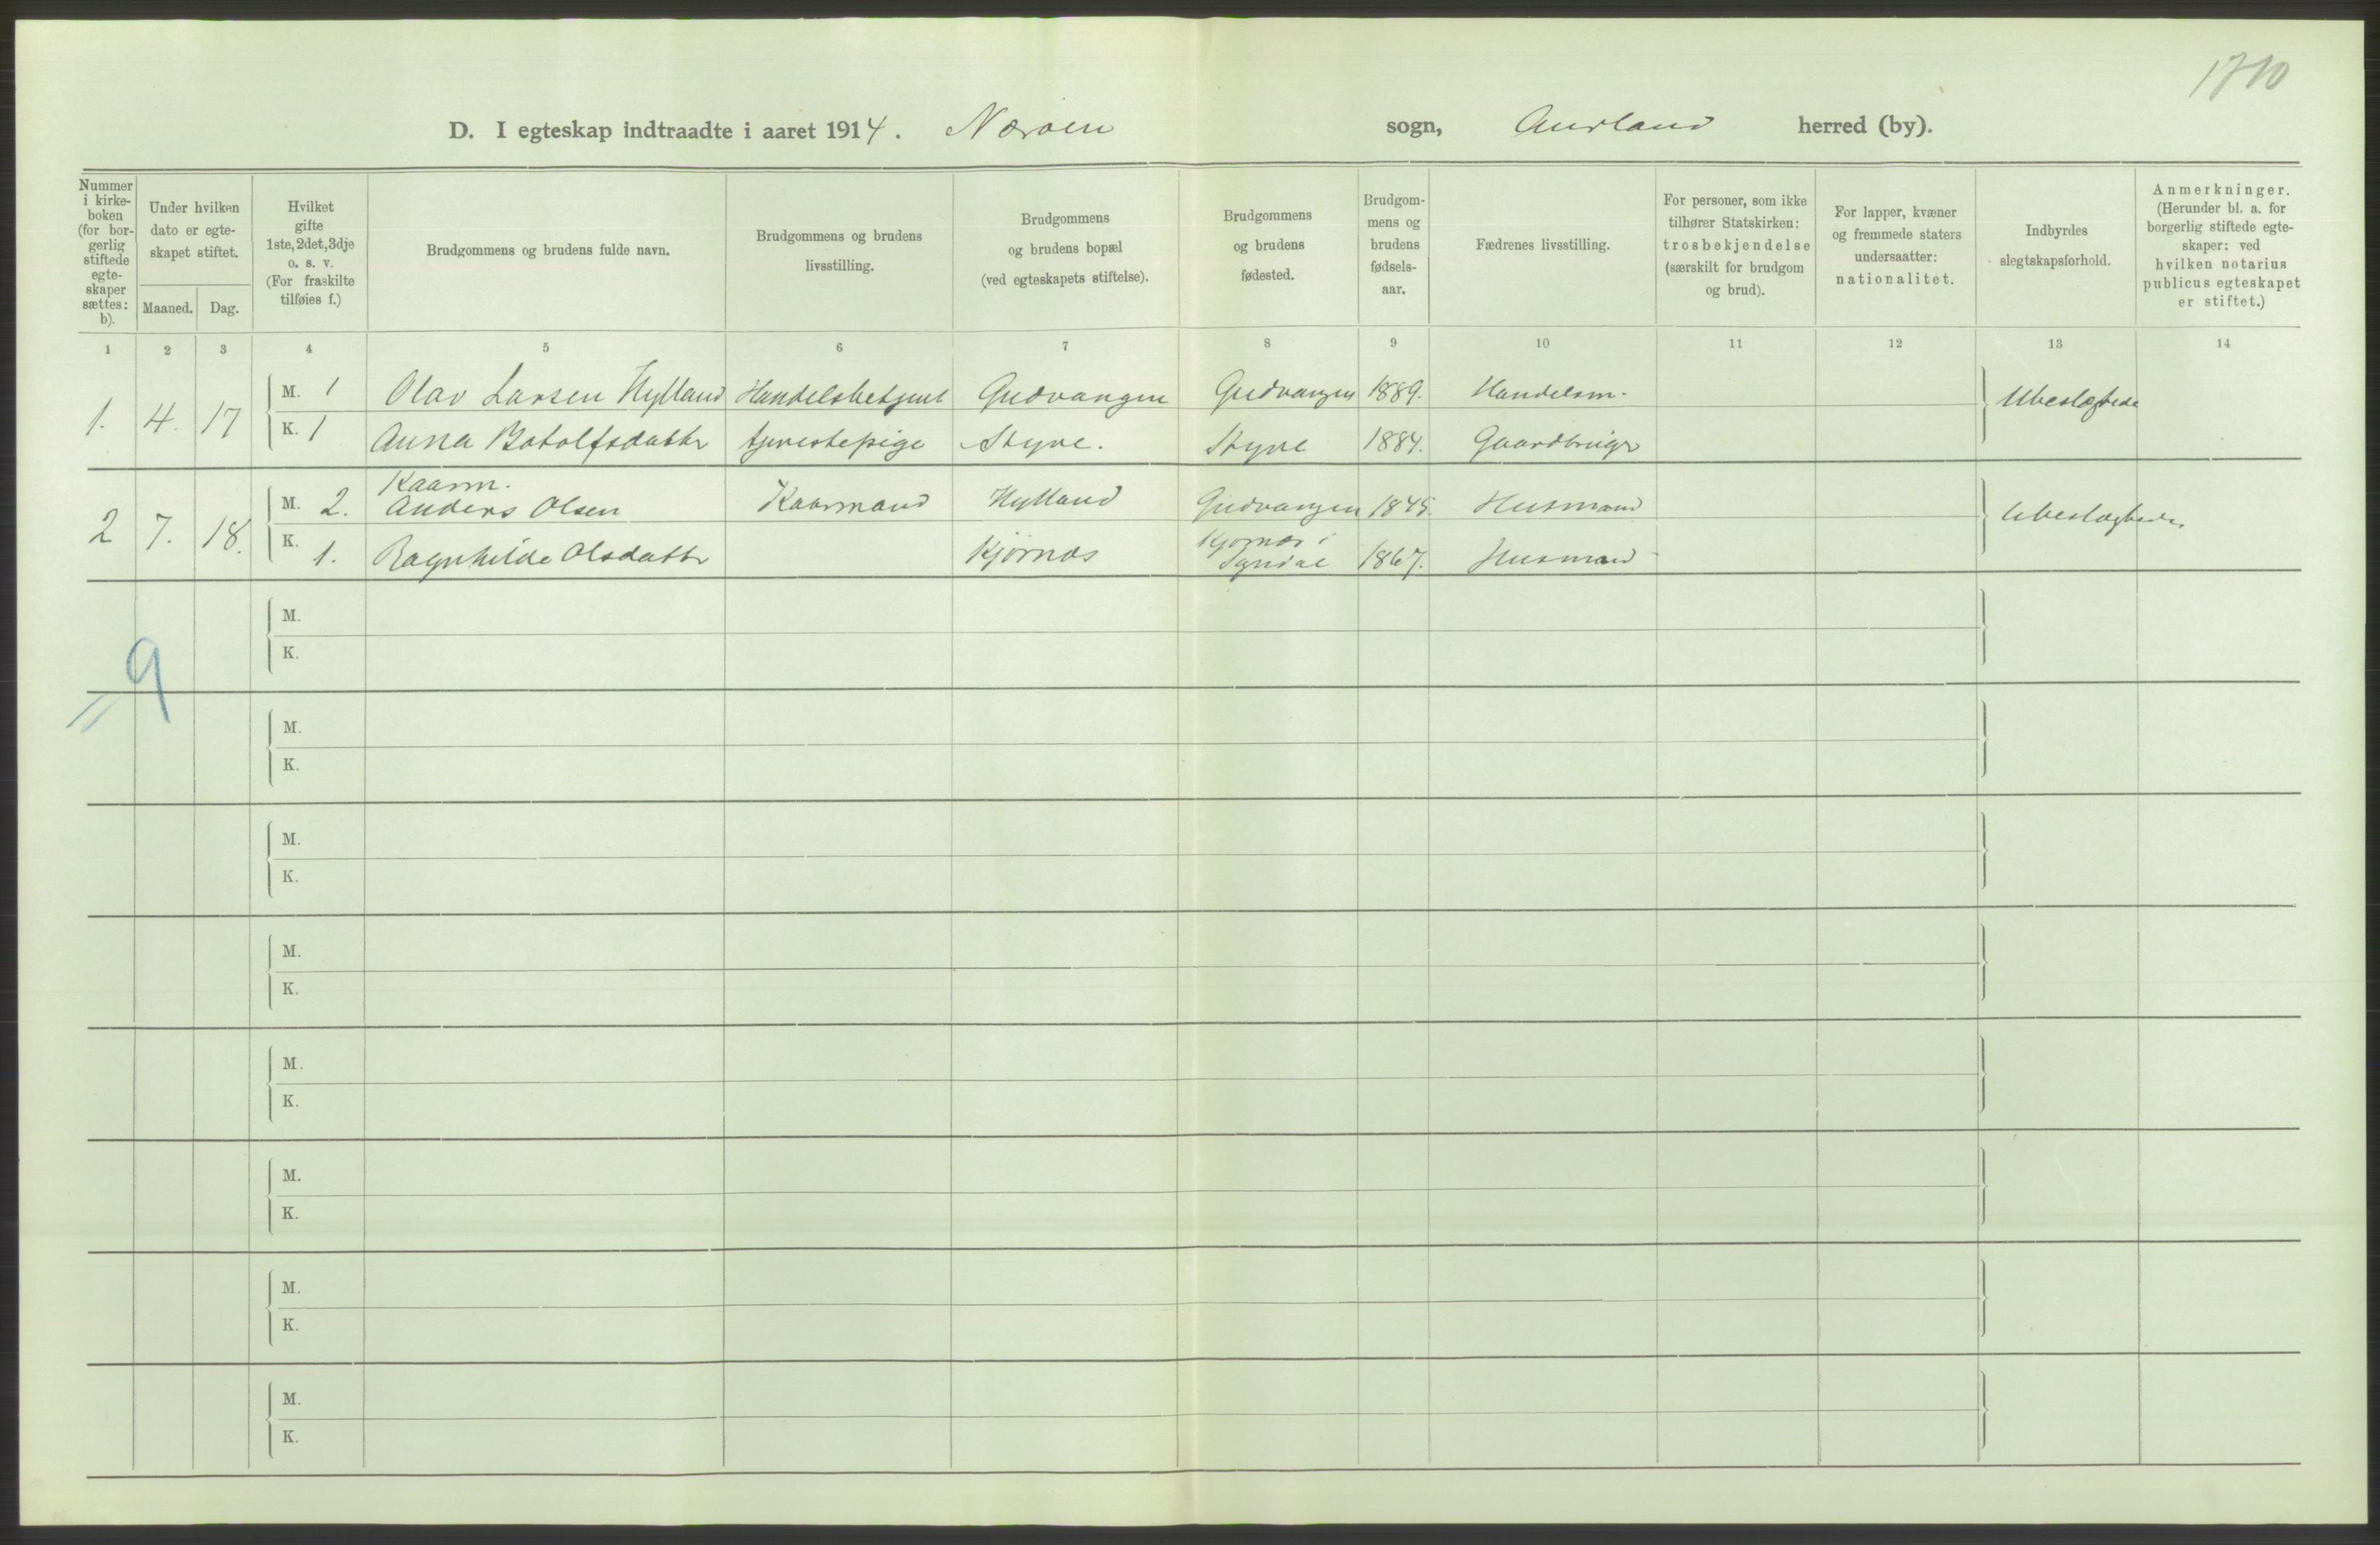 1710
D. I egteskap indtraadte i aaret 1914. Nærøen sogn, Aurland herred (by).
Nummer i kirke-boken (for bor-gerlig stiftede egte-skaper sættes: b).
Under hvilken dato er egte-skapet stiftet.
Maaned. Dag.
Hvilket gifte 1ste, 2det, 3dje o. s. v. (For fraskilte tilføies f.)
Brudgommens og brudens fulde navn.
Brudgommens og brudens livsstilling.
Brudgommens og brudens bopæl (ved egteskapets stiftelse).
Brudgommens og brudens fødested.
Brudgom-mens og brudens fødsels-aar.
Fædrenes livsstilling.
For personer, som ikke tilhører Statskirken: trosbekjendelse (særskilt for brudgom og brud).
For lapper, kvæner og fremmede staters undersaatter: nationalitet.
Indbyrdes slegtskapsforhold.
Anmerkninger. (Herunder bl. a. for borgerlig stiftede egte-skaper: ved hvilken notarius publicus egteskapet er stiftet.)
1 2 3 4 5 6 7 8 9 10 11 12 13 14
1. 4. 17 M. 1 Olav Larsen Hylland Handelsbetjent Gudvangen Gudvangen 1889. Handelsm. Ubeslægtede
K. 1 Anna Botolfsdatter tjenestepige Styve. Styve 1884. Gaardbruger
Kaarm.
2 7. 18. M. 2. Anders Olsen Kaarmand Hylland Gudvangen 1845. Husmand Ubeslægtede.
K. 1. Ragnhilde Olsdatter Kjørnes Kjørnes i Sogndal 1867. Husmand
M.
K.
9
M.
K.
M.
K.
M.
K.
M.
K.
M.
K.
M.
K.
M.
K.